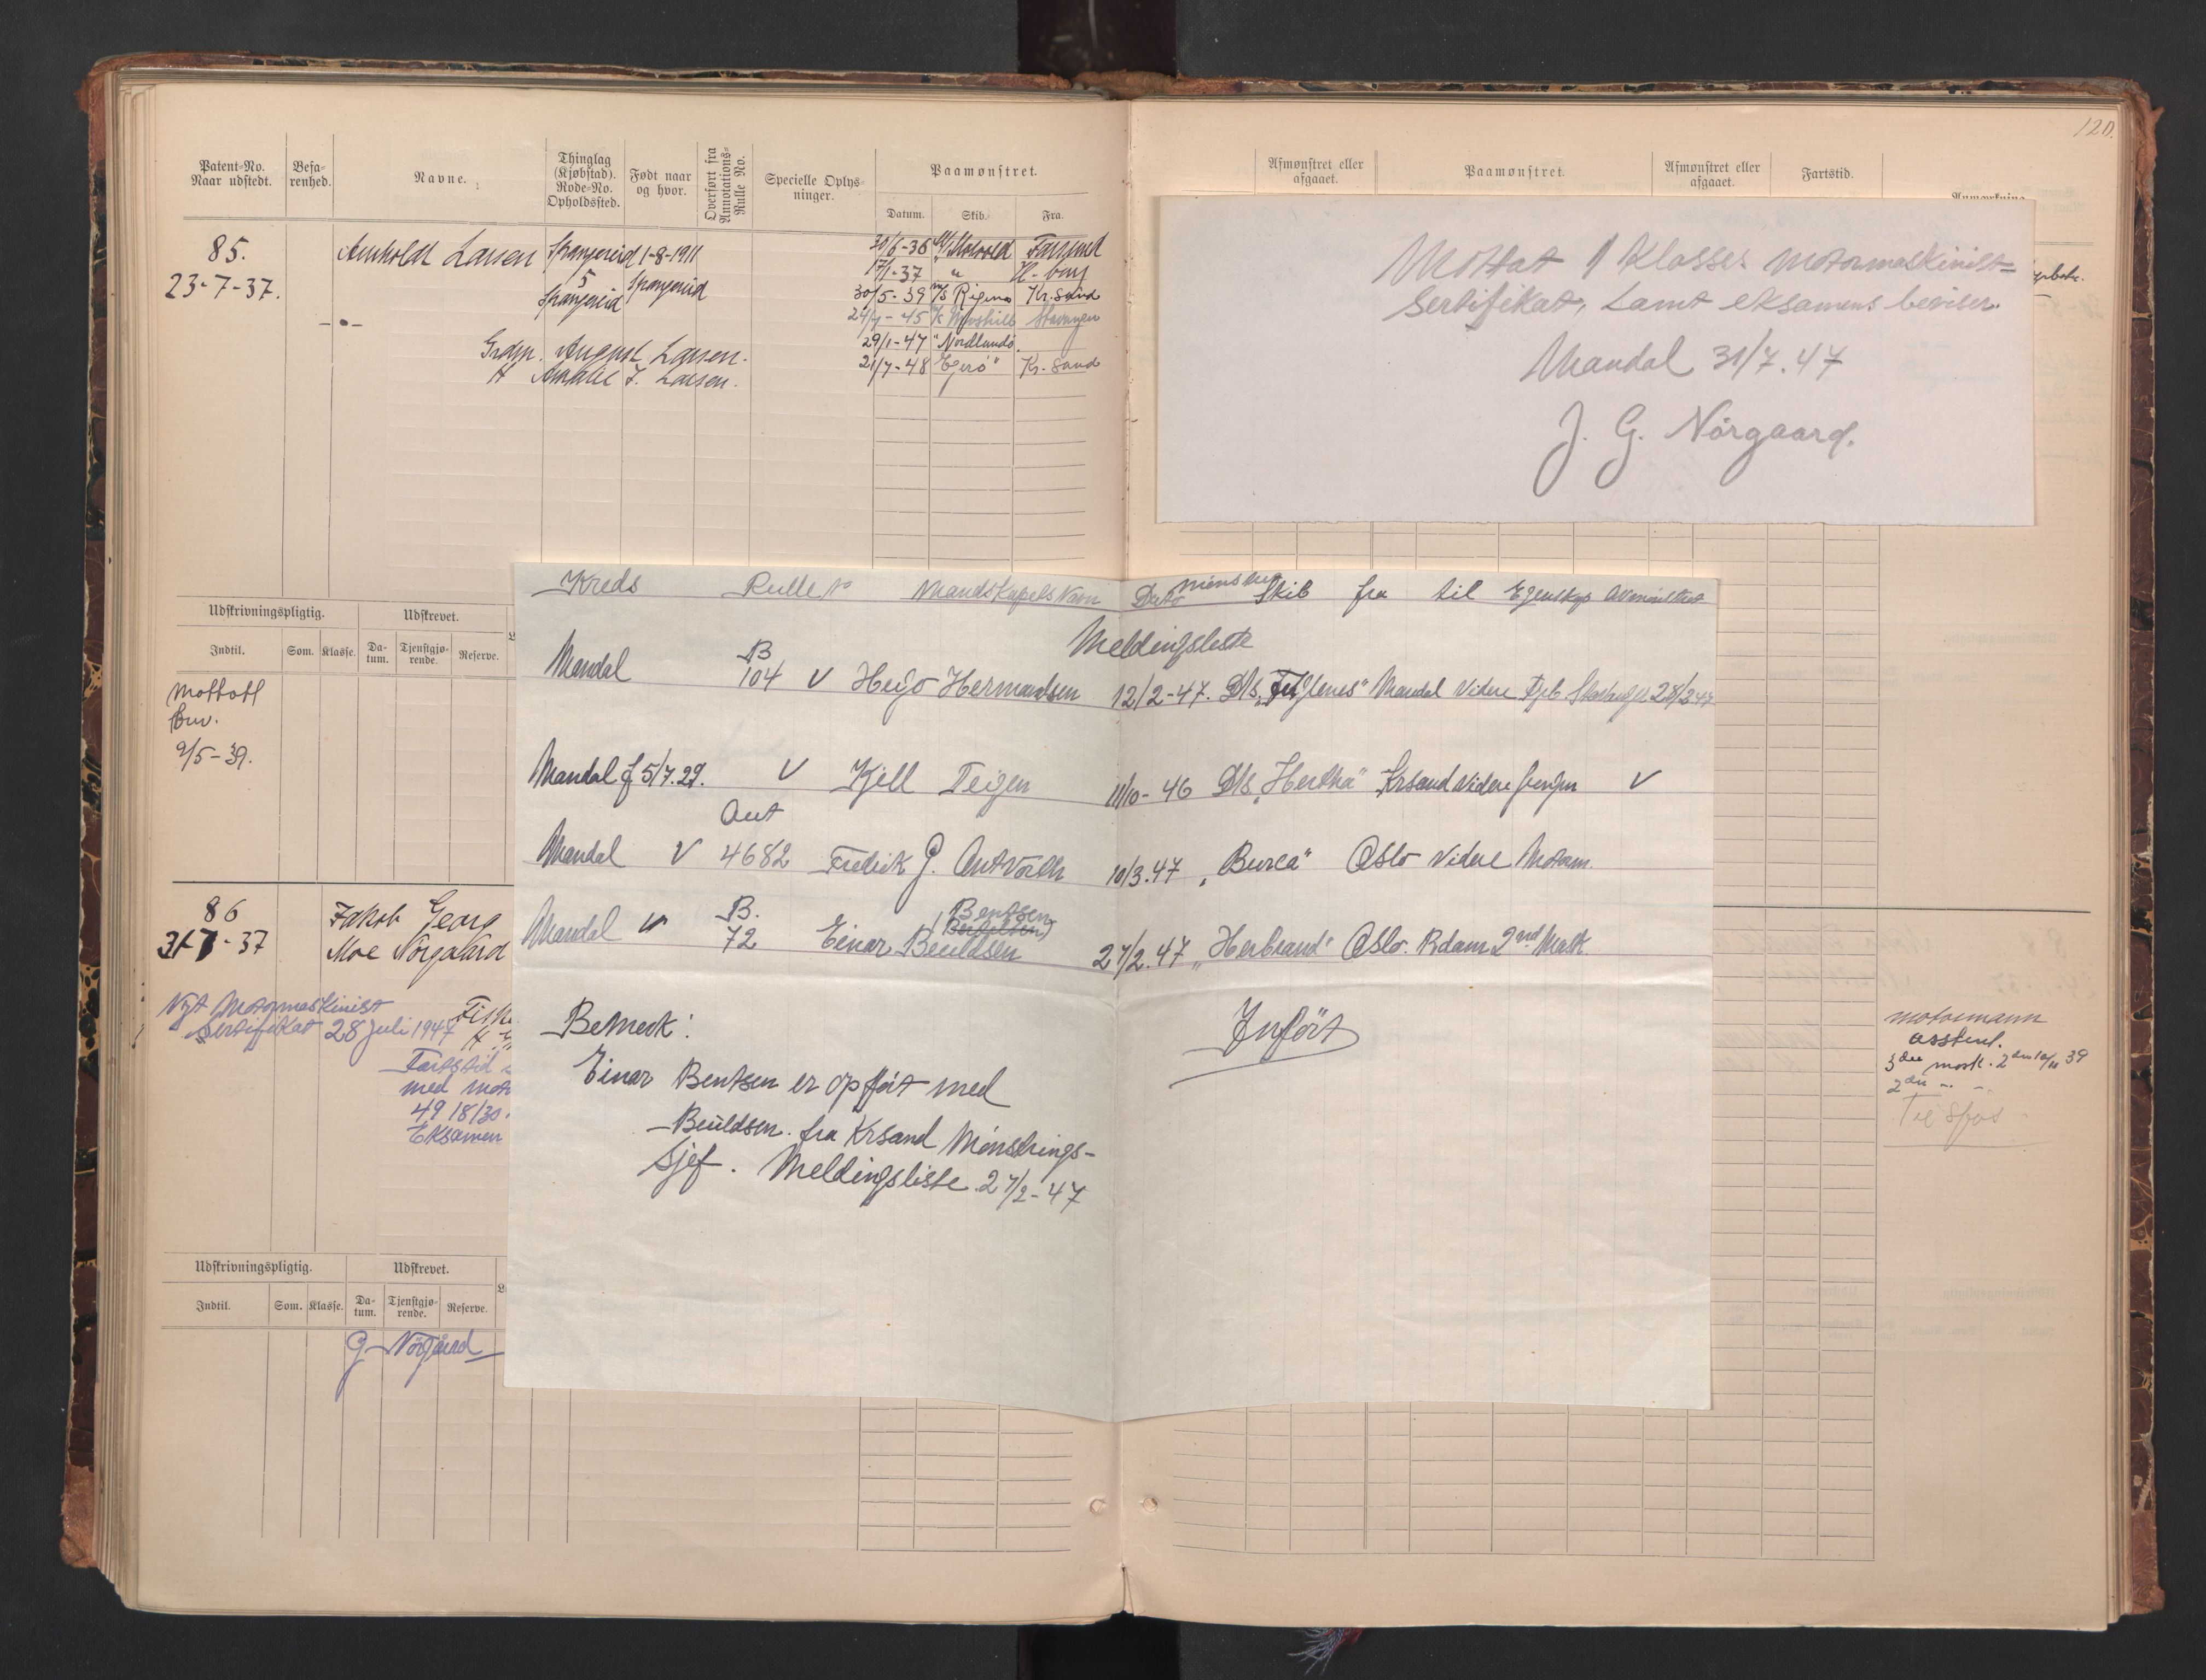 120.
Patent-No. Naar udstedt.
Befa-renhed.
Navne.
Thinglag (Kjøbstad). Rode-No. Opholdssted.
Født naar og hvor.
Overført fra Annotations-Rulle No.
Specielle Oplys-ninger.
Paamønstret.
Datum. Skib. Fra.
85. Arnholdt Larsen Spangereid 1-8-1911
23-7-37. 5 Spangereid
Spangereid
Grdbr. August Larsen.
H Amalie J. Larsen.
30/6-36 Farsund
17/1-37 "
30/5-39 M/S Rigmor Kr. Sand
24/7-45 Stavanger
29/1-47 "Nordlund"
21/7-48 "Egerö" Kr. Sand
Udskrivningspligtig. Udskrevet.
Indtil. Som. Klasse. Da-tum. Tjenstgjø-rende. Reserve.
Mottatt
9/5-39.
86 Jakob Georg
31-7-37 Moe Nörgaard
Nytt Motormaskinist
Sertifikat 28 Juli 1947
Fartstid
med
49 18/30.
Eksamen
Udskrivningspligtig. Udskrevet.
Indtil. Som. Klasse. Da-tum. Tjenstgjø-rende. Reserve.
G Nörgård
Afmønstret eller afgaaet.
Paamønstret.
Afmønstret eller afgaaet.
Fartstid.
Anmærkning
Mottat 1 Klasses motormaskinist=
Sertifikat, samt eksamens beviser.
Mandal 31/7.47
J. G. Nörgaard.
Kreds Rulle No Mandskapets Navn Dato mönstret Skib fra til Egenskap Avmönstret
Meldingsliste
B
Mandal 104 V Hugo Hermandsen 12/2-47. D/S Mandal Videre 28/2 47
Mandal f 5/7.29. V Kjell Teigen 11/10-46 D/S "Hertha" Krsand Videre V
Ant
Mandal V 4682 Fredrik G. 10/3.47 "Burca" Oslo Videre Motorm.
B. Bentsen
Mandal V 72 Einar Beuldsen 27/2.47 "Herbrand" Oslo. Rdam 2nd Mask.
Bemerk:
Einar Bentsen er opfört med
Beuldsen. fra Krsand Mönstrings-
sjef. Meldingsliste 27/2-47
Infört
motormann
assistent.
3die mask. 2den 39
2den -- --